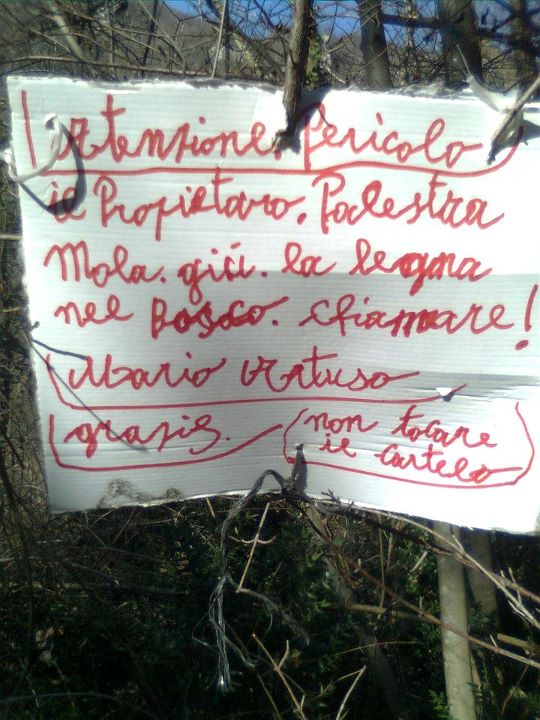 Atenzione. Pericolo
il Propietaro. Palestra
Mola. giù. la legna
nel Bosco. chiamare!
Mario Artuso
grasie.
non tocare
il Cartelo